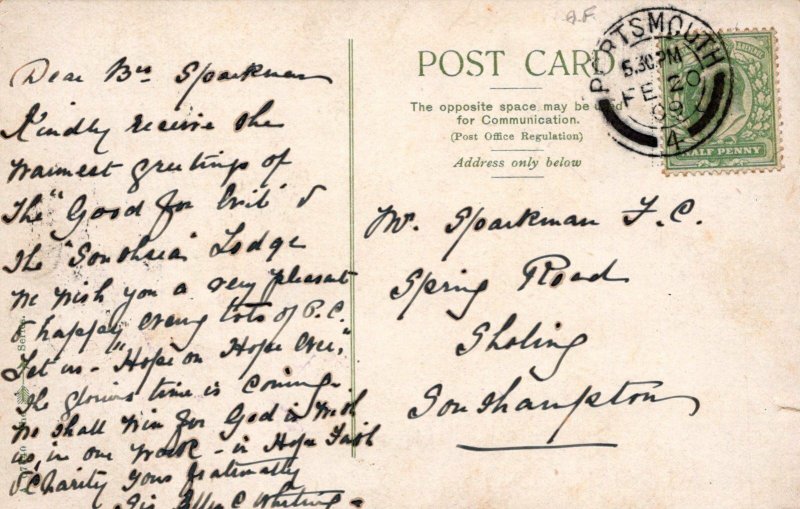 Dear Bro Sparkman
Kindly receive the
warmest greetings of
The "Good for Evil" &
the "Southsea" Lodge
we wish you a very pleasant
& happy evening lots of P.C.
Let us - "Hope on Hope Ever,"
The glorious time is coming -
we shall win for God is with
us, in our work - in Hope Faith
& Charity yours fraternally
Sis Ellen C Whiting -
POST CARD
The opposite space may be used
for Communication.
(Post Office Regulation)
Address only below
A.F.
PORTSMOUTH
5.30 PM
FE 20
09
4
HALF PENNY
Mr. Sparkman F.C.
Spring Road
Sholing
Southampton